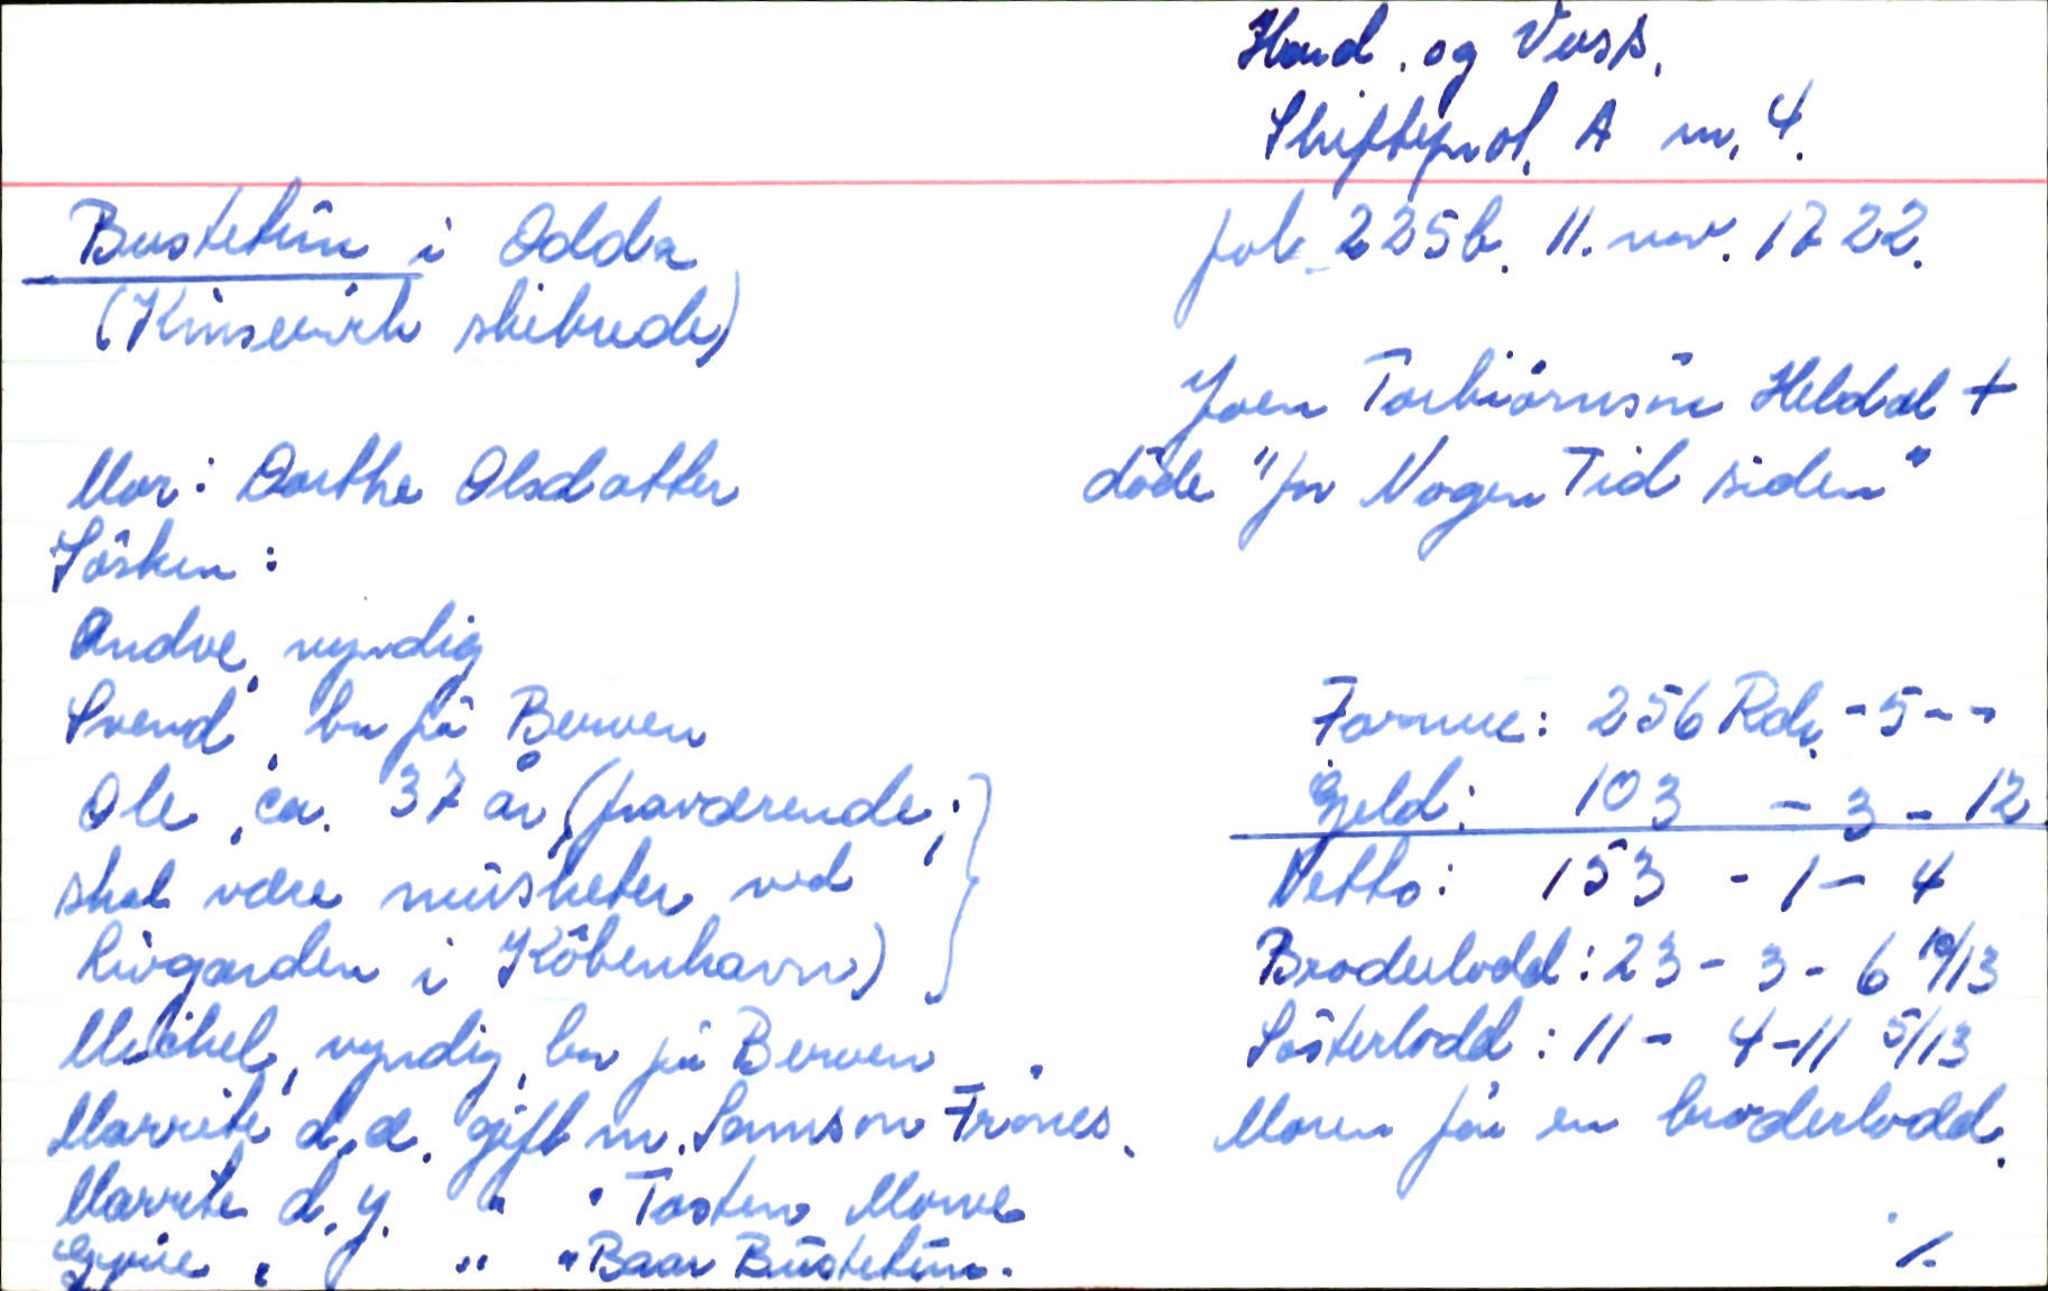 Hard. og Voss,
Skifteprot. A nr. 4.
Bustetun i Odda
fol. 225b. 11. nov. 1722.
(Kinservik skibrede)
Joen Torbiörnsön Heldal +
döde "for Nogen Tid siden"
Mor: Dorthe Olsdatter
Sösken:
Andve, myndig
Svend, bu på Berven
Ole, ca. 37 år, (fraværende;
skal være musketer ved
Livgarden i Köbenhavn)
Michel, myndig, bur på Berven
Marrite d.æ. gift m. Samson Frönes.
Marrite d.y. " " Tosten Mowe
" " " Baar Bustetun.
Formue: 256 Rdr. - 5 - -
Gjeld: 103 - 3 - 12
Netto: 153 - 1 - 4
Broderlodd: 23 - 3 - 6 10/13
Sösterlodd: 11 - 4 - 11 5/13
Moren får en broderlodd.
./.